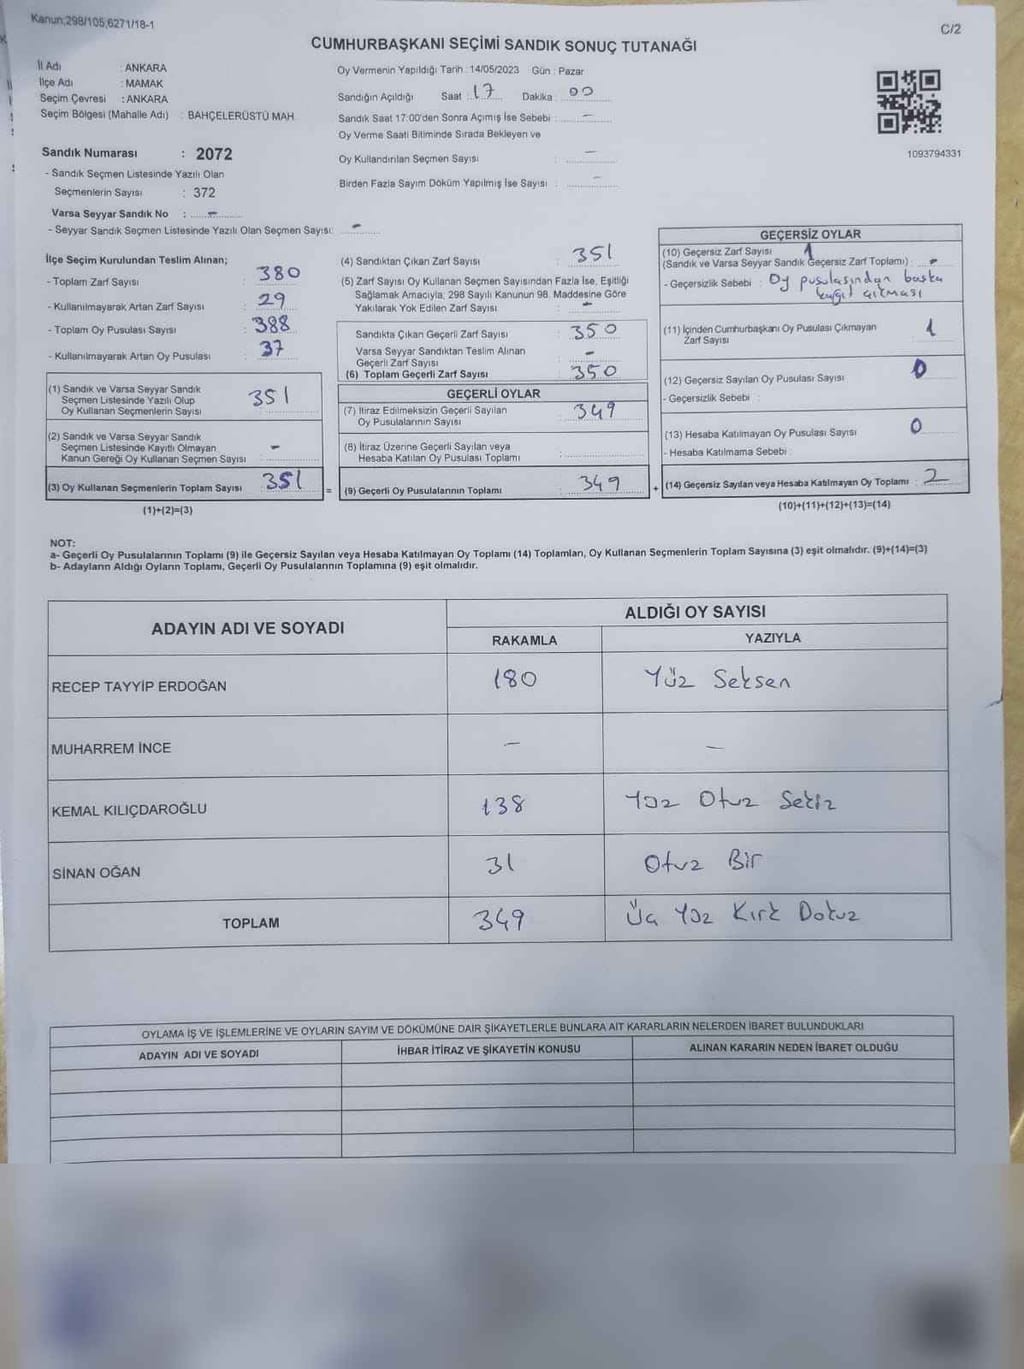 Kanun;298/105,6271/18-1
C/2
CUMHURBAŞKANI SEÇİMİ SANDIK SONUÇ TUTANAĞI
İl Adı : ANKARA
İlçe Adı : MAMAK
Seçim Çevresi : ANKARA
Seçim Bölgesi (Mahalle Adı) : BAHÇELERÜSTÜ MAH.
Sandık Numarası : 2072
- Sandık Seçmen Listesinde Yazılı Olan
Seçmenlerin Sayısı : 372
Varsa Seyyar Sandık No : -
- Seyyar Sandık Seçmen Listesinde Yazılı Olan Seçmen Sayısı: -
Oy Vermenin Yapıldığı Tarih : 14/05/2023 Gün : Pazar
Sandığın Açıldığı Saat : 17 Dakika : 00
Sandık Saat 17:00'den Sonra Açımış İse Sebebi : -
Oy Verme Saati Bitiminde Sırada Bekleyen ve
Oy Kullandırılan Seçmen Sayısı : -
Birden Fazla Sayım Döküm Yapılmış İse Sayısı : -
1093794331
İlçe Seçim Kurulundan Teslim Alınan;
- Toplam Zarf Sayısı : 380
- Kullanılmayarak Artan Zarf Sayısı : 29
- Toplam Oy Pusulası Sayısı : 388
- Kullanılmayarak Artan Oy Pusulası : 37
(1) Sandık ve Varsa Seyyar Sandık
Seçmen Listesinde Yazılı Olup
Oy Kullanan Seçmenlerin Sayısı : 351
(2) Sandık ve Varsa Seyyar Sandık
Seçmen Listesinde Kayıtlı Olmayan
Kanun Gereği Oy Kullanan Seçmen Sayısı : -
(3) Oy Kullanan Seçmenlerin Toplam Sayısı : 351
(1)+(2)=(3)
(4) Sandıktan Çıkan Zarf Sayısı : 351
(5) Zarf Sayısı Oy Kullanan Seçmen Sayısından Fazla İse, Eşitliği
Sağlamak Amacıyla, 298 Sayılı Kanunun 98. Maddesine Göre
Yakılarak Yok Edilen Zarf Sayısı : -
Sandıkta Çıkan Geçerli Zarf Sayısı : 350
Varsa Seyyar Sandıktan Teslim Alınan
Geçerli Zarf Sayısı : -
(6) Toplam Geçerli Zarf Sayısı : 350
GEÇERLİ OYLAR
(7) İtiraz Edilmeksizin Geçerli Sayılan
Oy Pusulalarının Sayısı : 349
(8) İtiraz Üzerine Geçerli Sayılan veya
Hesaba Katılan Oy Pusulası Toplamı :
= (9) Geçerli Oy Pusulalarının Toplamı : 349
GEÇERSİZ OYLAR
(10) Geçersiz Zarf Sayısı : 1
(Sandık ve Varsa Seyyar Sandık Geçersiz Zarf Toplamı) : -
- Geçersizlik Sebebi : Oy pusulasından başka
kağıt çıkması
(11) İçinden Cumhurbaşkanı Oy Pusulası Çıkmayan
Zarf Sayısı : 1
(12) Geçersiz Sayılan Oy Pusulası Sayısı : 0
- Geçersizlik Sebebi :
(13) Hesaba Katılmayan Oy Pusulası Sayısı : 0
- Hesaba Katılmama Sebebi :
+ (14) Geçersiz Sayılan veya Hesaba Katılmayan Oy Toplamı : 2
(10)+(11)+(12)+(13)=(14)
NOT:
a- Geçerli Oy Pusulalarının Toplamı (9) ile Geçersiz Sayılan veya Hesaba Katılmayan Oy Toplamı (14) Toplamları, Oy Kullanan Seçmenlerin Toplam Sayısına (3) eşit olmalıdır. (9)+(14)=(3)
b- Adayların Aldığı Oyların Toplamı, Geçerli Oy Pusulalarının Toplamına (9) eşit olmalıdır.
ADAYIN ADI VE SOYADI
ALDIĞI OY SAYISI
RAKAMLA YAZIYLA
RECEP TAYYİP ERDOĞAN 180 Yüz Seksen
MUHARREM İNCE - -
KEMAL KILIÇDAROĞLU 138 Yüz Otuz Sekiz
SİNAN OĞAN 31 Otuz Bir
TOPLAM 349 Üç Yüz Kırk Dokuz
OYLAMA İŞ VE İŞLEMLERİNE VE OYLARIN SAYIM VE DÖKÜMÜNE DAİR ŞİKAYETLERLE BUNLARA AİT KARARLARIN NELERDEN İBARET BULUNDUKLARI
ADAYIN ADI VE SOYADI İHBAR İTİRAZ VE ŞİKAYETİN KONUSU ALINAN KARARIN NEDEN İBARET OLDUĞU